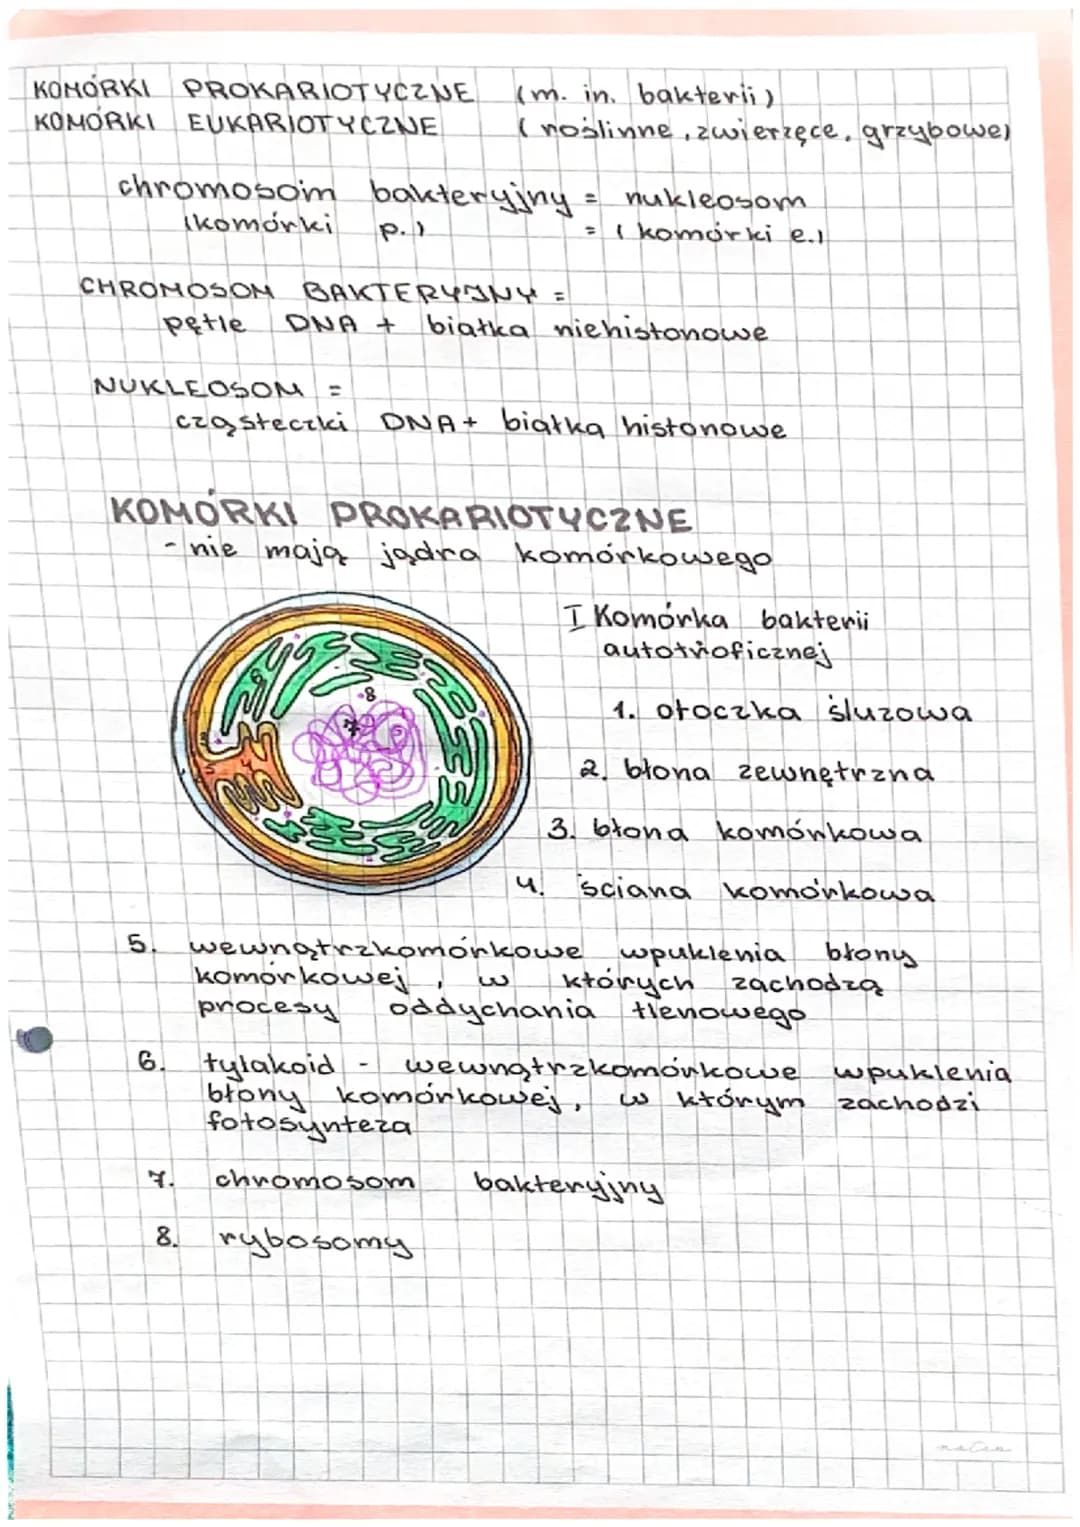 KOMÓRKI PROKARIOTYCZNE (m. in. bakterii)
KOMÓRKI EUKARIOTYCZNE (roślinne, zwierzęce, grzybowe)
chromosom bakteryjny = nukleosom
(komórki p.) = (komórki e.)
CHROMOSOM BAKTERYJNY =
pętle DNA + białka niehistonowe
NUKLEOSOM =
cząsteczki DNA + białka histonowe
KOMÓRKI PROKARIOTYCZNE
- nie mają jądra komórkowego
I Komórka bakterii
autotroficznej
8
1. otoczka śluzowa
2. błona zewnętrzna
3. błona komórkowa
4. ściana komórkowa
5. wewnątrzkomórkowe wpuklenia błony
komórkowej, w których zachodzą
procesy oddychania tlenowego
6. tylakoid - wewnątrzkomórkowe wpuklenia
błony komórkowej, w którym zachodzi
fotosynteza
7. chromosom bakteryjny
8. rybosomy